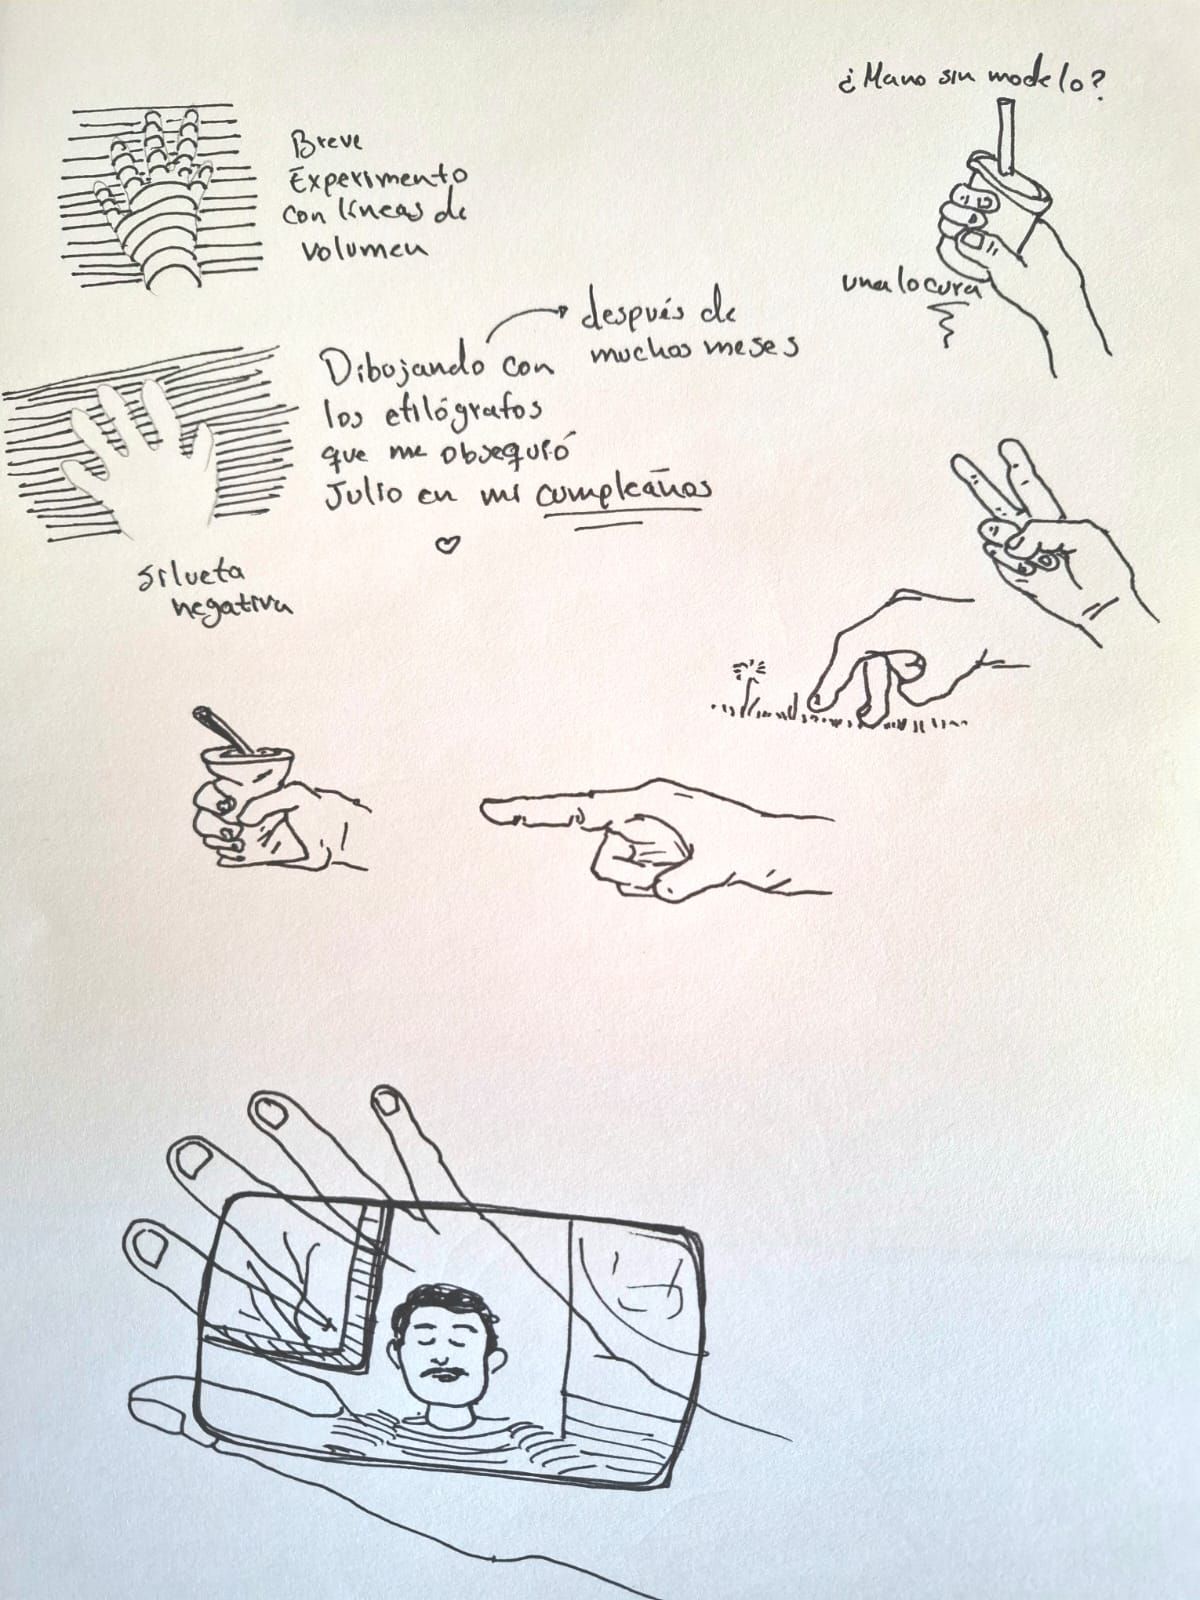 ¿Mano sin modelo?
Breve
Experimento
con líneas de
volumen
una locura
después de
muchos meses
Dibujando con
los etilógrafos
que me obsequió
Julio en mi cumpleaños
silueta
negativa